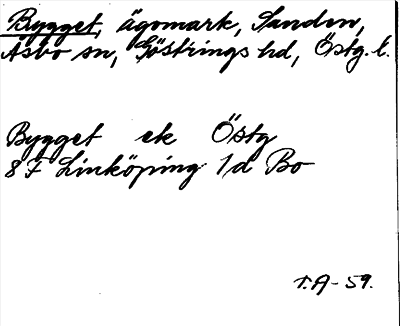 Bygget, ägomark, Sanden,
Åsbo sn, Göstrings hd, Östg. l.
Bygget ek Östg
8 F Linköping 1 d Bo
T.A-59.